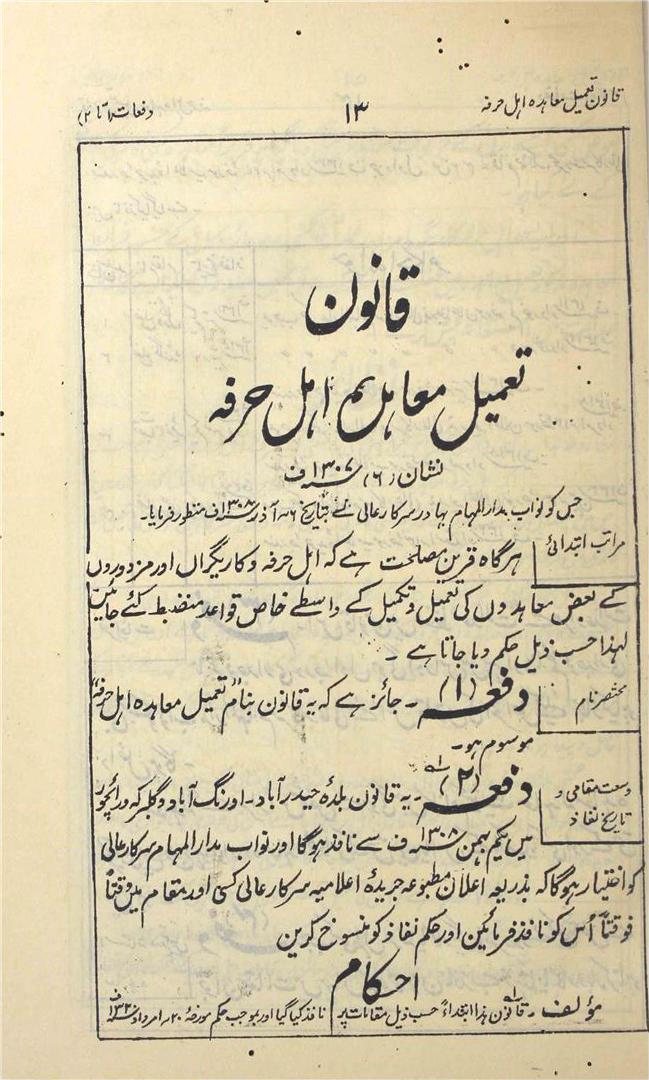 قانون تعمیل معاہدہ اہل حرفہ
۱۳
دفعات (۱ تا ۲)
قانون
تعمیل معاہدہ اہل حرفہ
نشان (۶) ۱۳۰۷ ف
جس کو نواب مدارالمہام بہادر سرکار عالی نے بتاریخ ۶ آذر ۱۳۰۸ ف منظور فرمایا۔
مراتب ابتدائی
ہرگاہ قرین مصلحت ہے کہ اہل حرفہ و کاریگراں اور مزدوروں
کے بعض معاہدوں کی تعمیل و تکمیل کے واسطے خاص قواعد منضبط کئے جائیں
لہذا حسب ذیل حکم دیا جاتا ہے ۔
مختصر نام
دفعہ (۱) ۔ جائز ہے کہ یہ قانون بنام "تعمیل معاہدہ اہل حرفہ"
موسوم ہو۔
وسعت مقامی و
تاریخ نفاذ
دفعہ (۲) ۔ یہ قانون بلدۂ حیدرآباد ۔ اورنگ آباد و گلبرگہ و رائچور
میں یکم بہمن ۱۳۰۸ ف سے نافذ ہوگا اور نواب مدارالمہام سرکار عالی
کو اختیار ہوگا کہ بذریعہ اعلان مطبوعہ جریدۂ اعلامیہ سرکار عالی کسی اور مقام میں وقتاً
فوقتاً اُس کو نافذ فرمائیں اور حکم نفاذ کو منسوخ کریں
احکام
مؤلف ۔ قانون ہذا ابتداءً حسب ذیل مقامات پر نافذ کیا گیا اور بموجب حکم مورخۂ ۲۰ امرداد